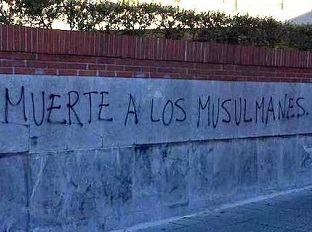 MUERTE A LOS MUSULMANES.